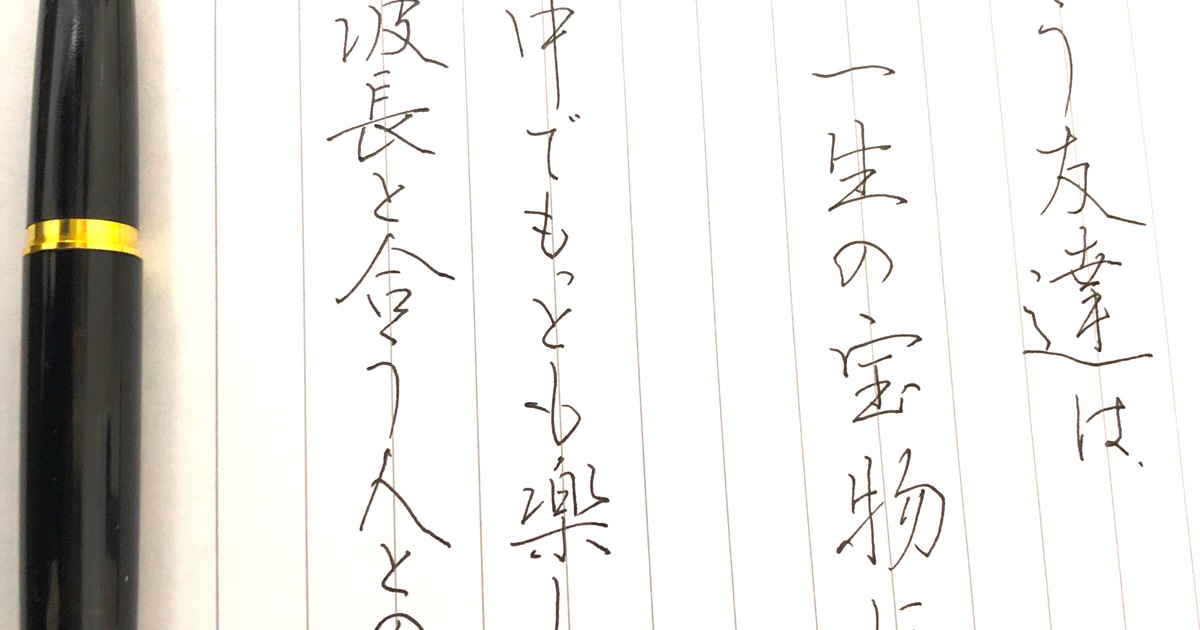 う友達は、
一生の宝物に
中でもっとも楽し
波長と合う人との